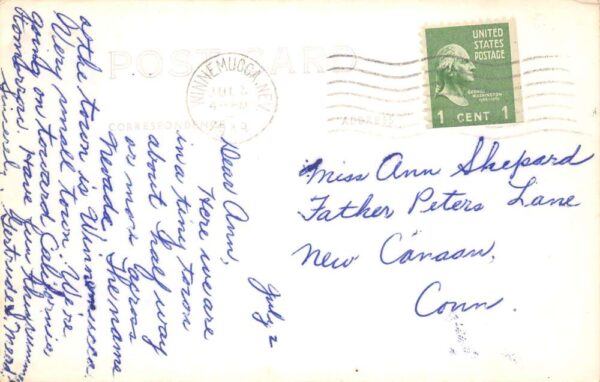 POST CARD
CORRESPONDENCE
ADDRESS
WINNEMUCCA, NEV.
JUL 2
UNITED
STATES
POSTAGE
GEORGE
WASHINGTON
1 CENT 1
July 2
Dear Ann,
Here we are
in a tiny town
about half way
or more across
Nevada. The name
of the town is Winnemucca.
Very small town. We're
going on toward California
tomorrow. Have fun this summer
Sincerely, Gertrude
Miss Ann Shepard
Father Peters Lane
New Canaan,
Conn.